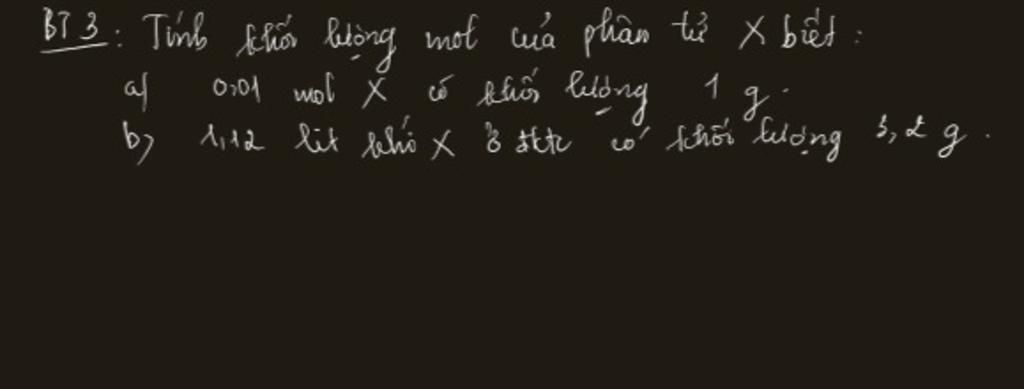 BT 3: Tính khối lượng mol của phân tử X biết:
a) 0,01 mol X có khối lượng 1 g.
b) 1,12 lít khí X ở đktc có khối lượng 3,2 g.